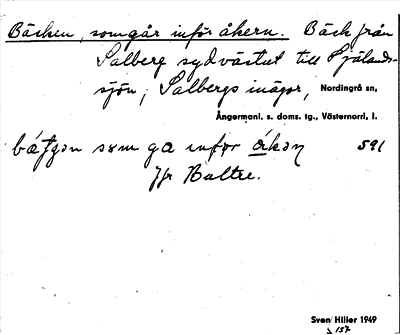 Bäcken, som går inför åkern. Bäck från
Salberg sydvästut till Själands-
sjön, Salbergs inägor, Nordingrå sn,
Ångermanl. s. doms. tg., Västernorrl. l.
som ga infor åkan 591
Jfr Baltre.
Sven Hiller 1949
157